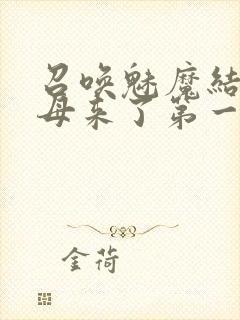 召唤魅魔结
母来了第一
金荷